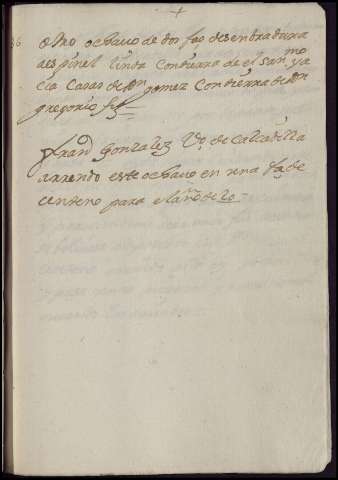 +
36 otro ochavo de dos fas de sembradura
a espinel linda con tierra de el san mo ya
cia casas de Dn gomez con tierra de Dn
gregorio
Frando Gonzalez Vo de calzadilla
arrendo este ochavo en una fa de
centeno para el año de 20 -